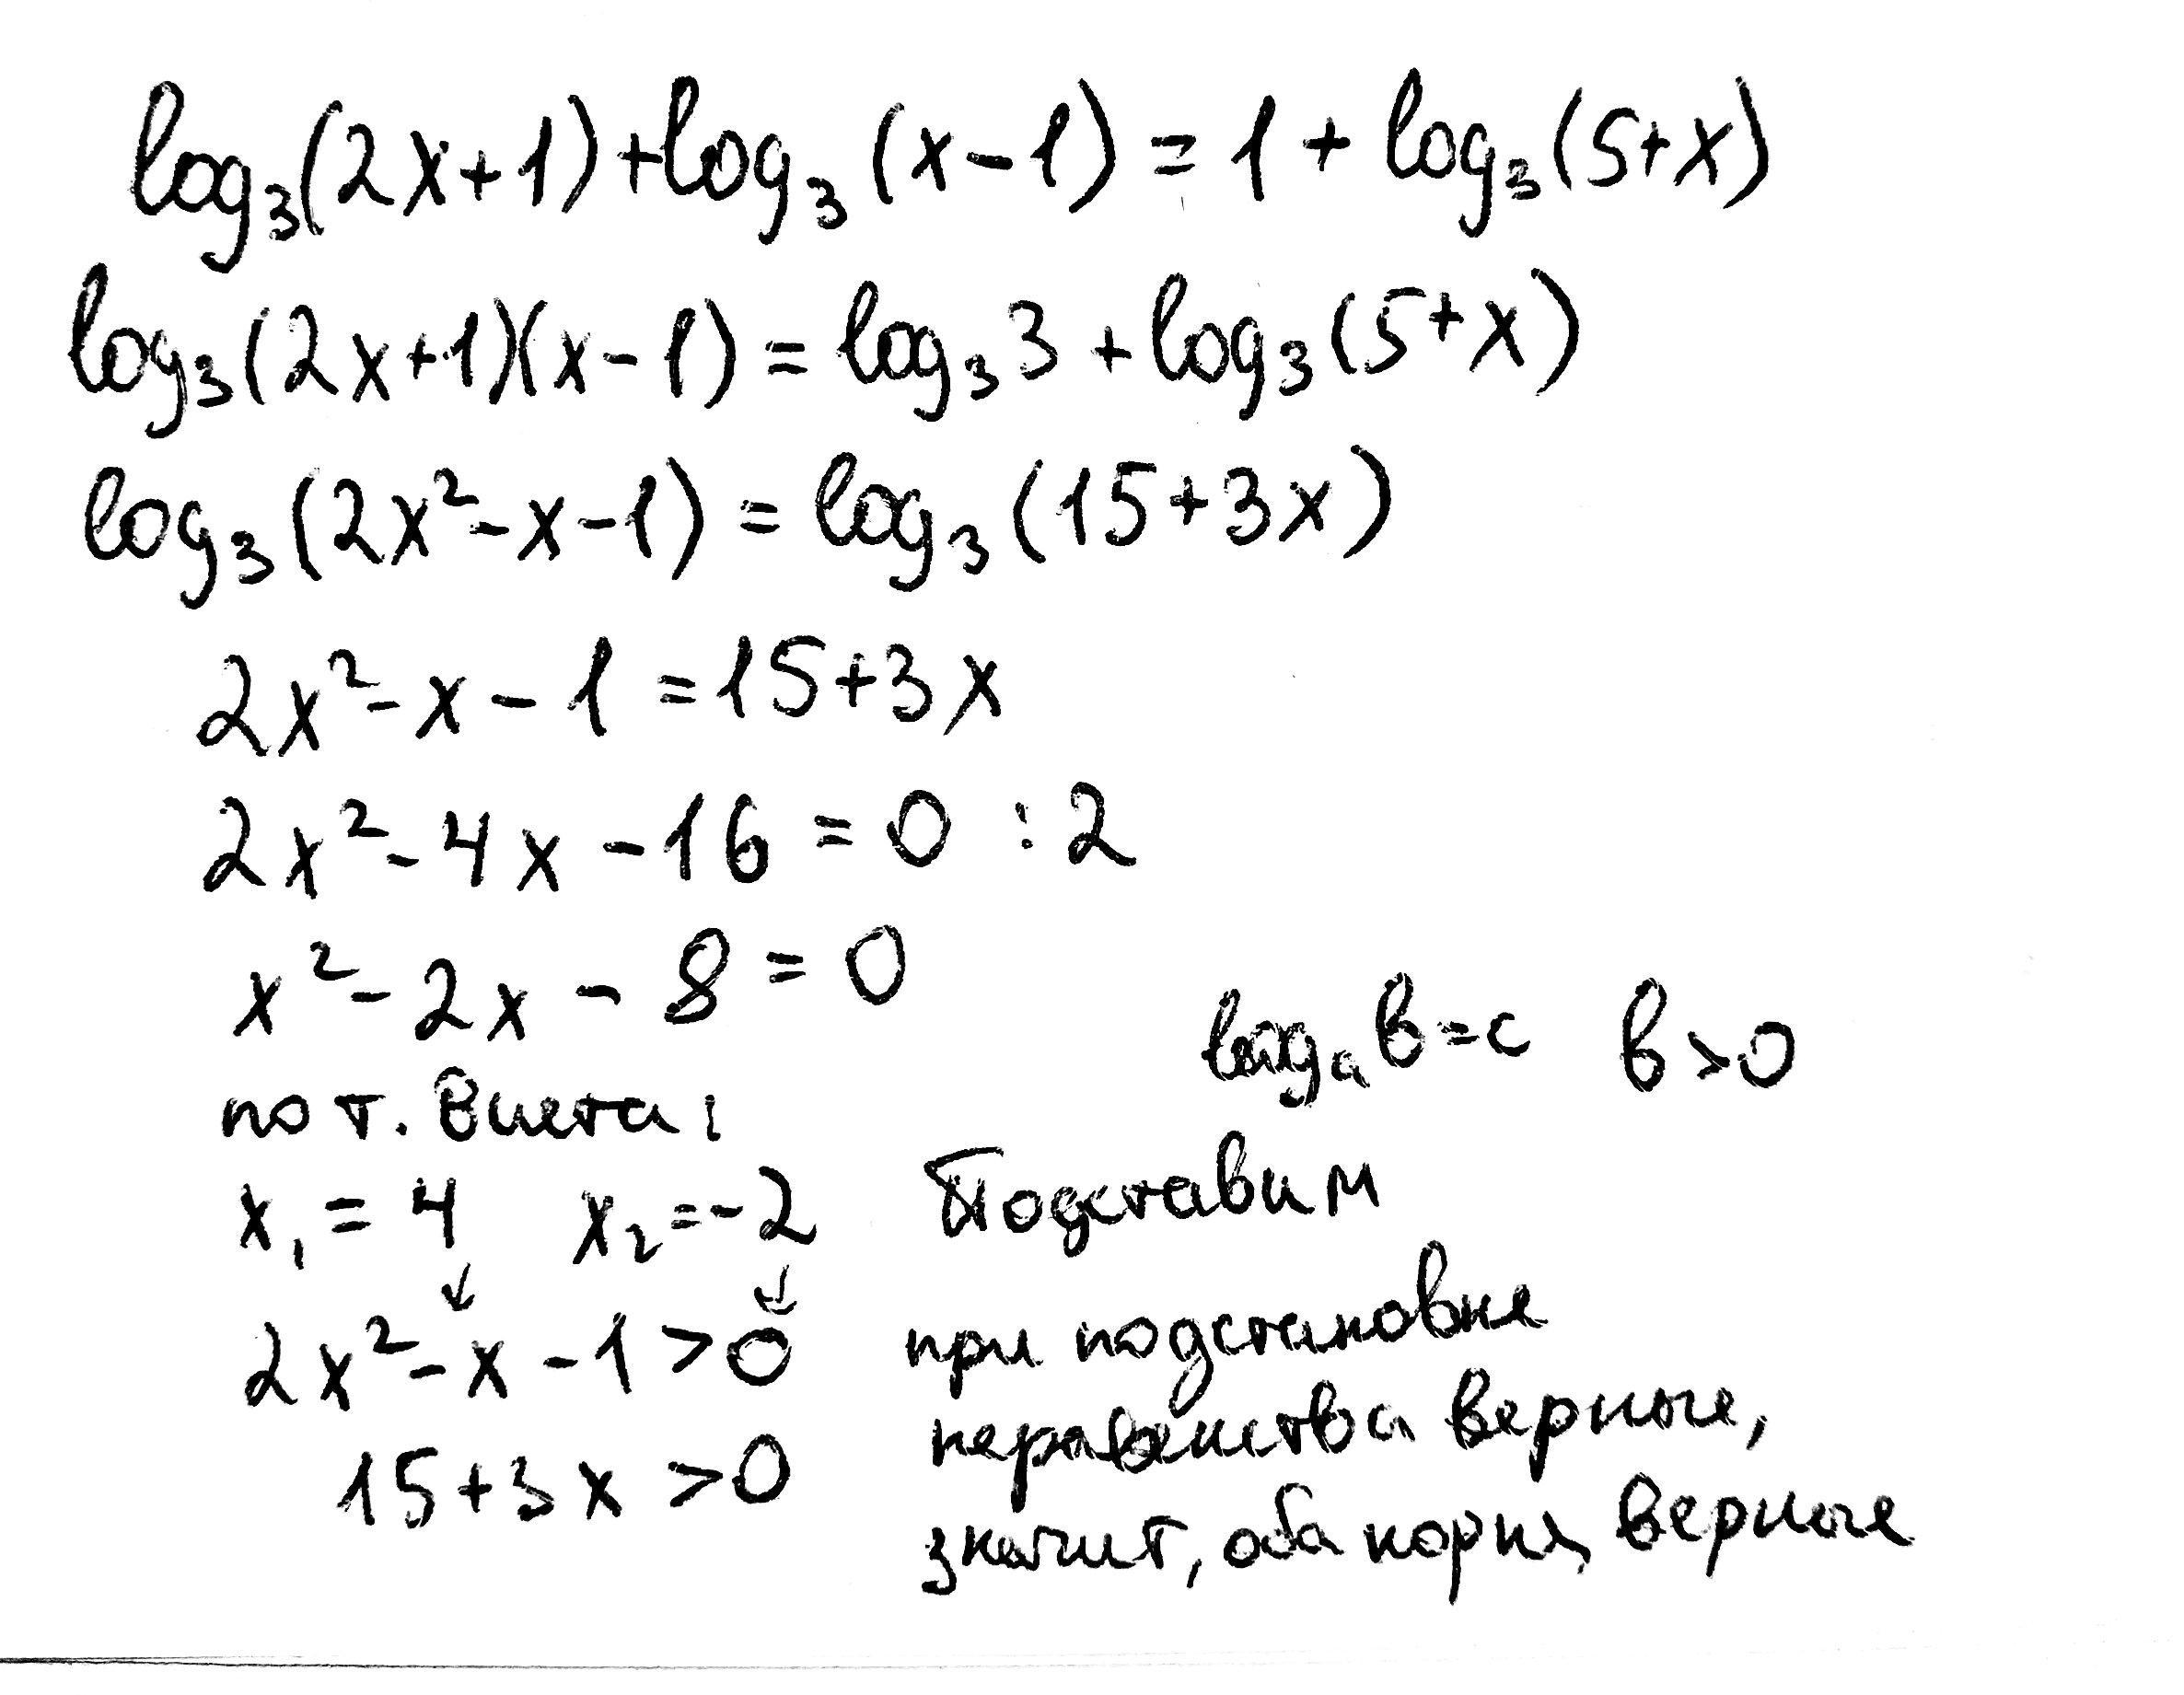 log₃(2x+1)+log₃(x-1)=1+log₃(5+x)
log₃(2x+1)(x-1)=log₃3+log₃(5+x)
log₃(2x²-x-1)=log₃(15+3x)
2x²-x-1=15+3x
2x²-4x-16=0 :2
x²-2x-8=0
logₐb=c b>0
по т. Виета:
x₁=4 x₂=-2
Подставим
2x²-x-1>0
15+3x>0
при подстановке
неравенства верные,
значит, оба корня верные